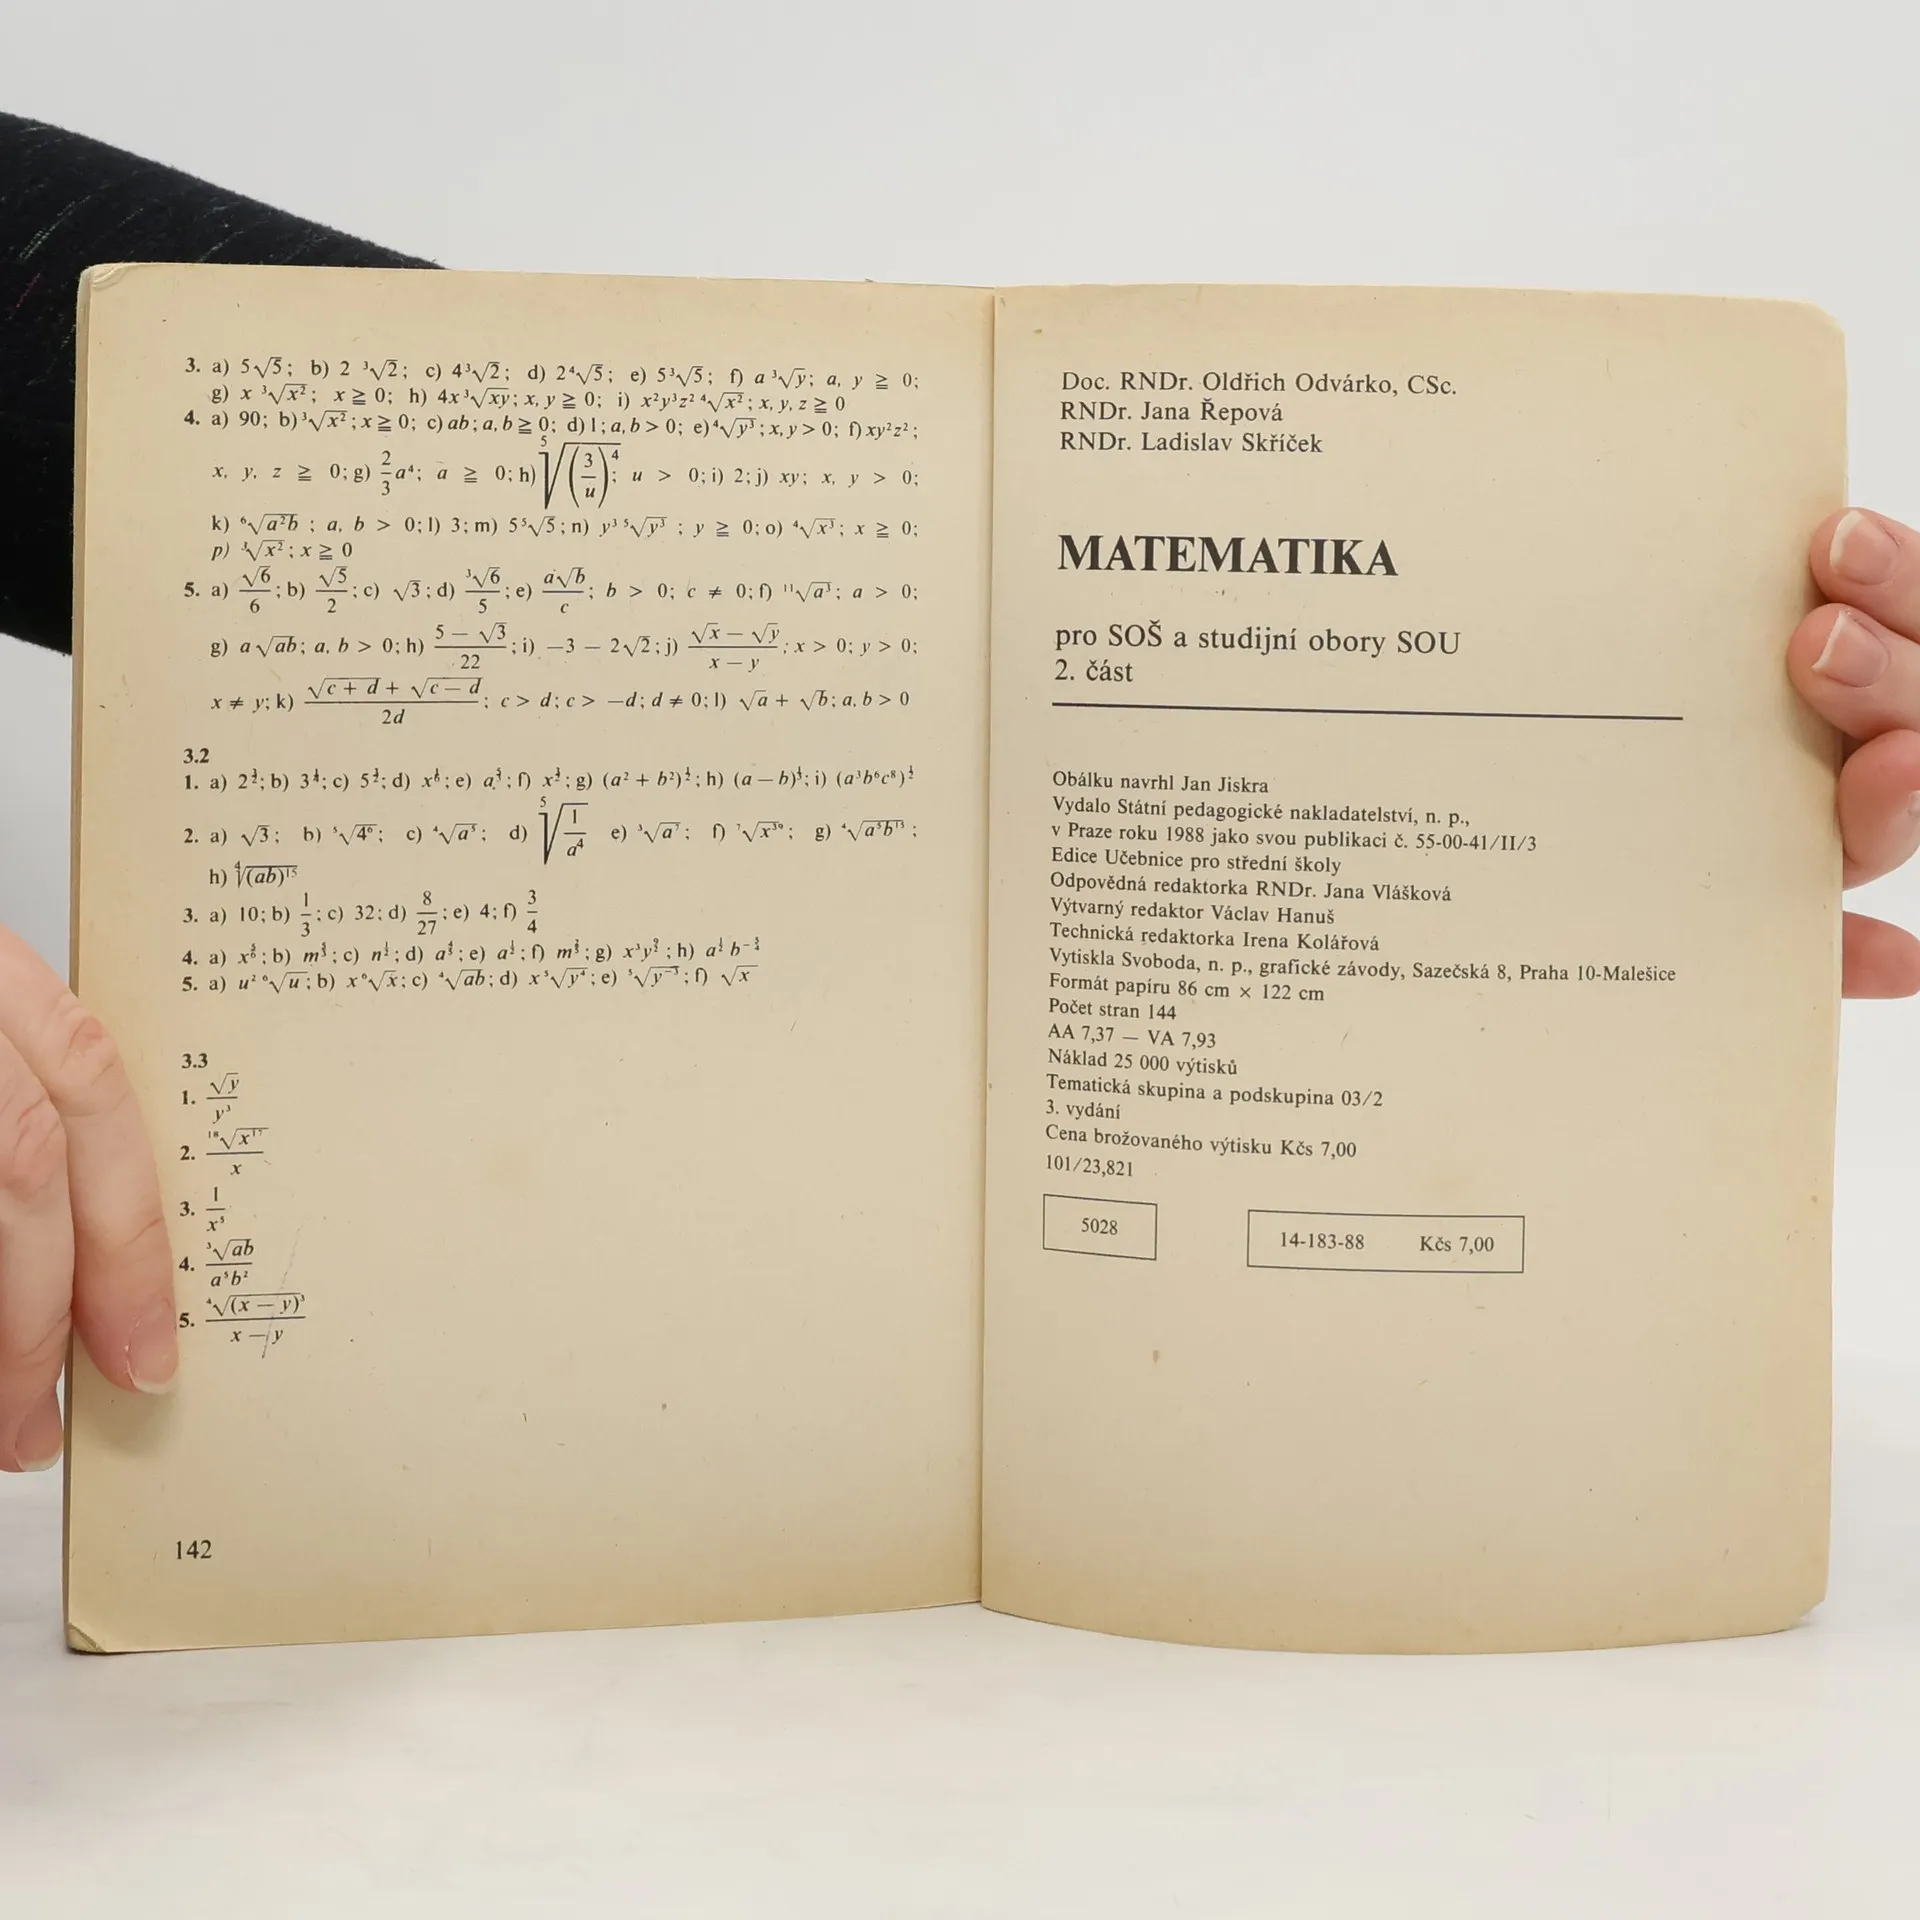 3. a) 5√5; b) 2 ³√2; c) 4³√2; d) 2⁴√5; e) 5³√5; f) a ³√y; a, y ≧ 0;
g) x ³√x²; x ≧ 0; h) 4x³√xy; x, y ≧ 0; i) x²y³z² ⁴√x²; x, y, z ≧ 0
4. a) 90; b) ³√x²; x ≧ 0; c) ab; a, b ≧ 0; d) 1; a, b > 0; e) ⁴√y³; x, y > 0; f) xy²z²;
x, y, z ≧ 0; g) 2/3 a⁴; a ≧ 0; h) ⁵√(3/u)⁴; u > 0; i) 2; j) xy; x, y > 0;
k) ⁶√a²b; a, b > 0; l) 3; m) 5⁵√5; n) y³ ⁵√y³; y ≧ 0; o) ⁴√x³; x ≧ 0;
p) ³√x²; x ≧ 0
5. a) √6/6; b) √5/2; c) √3; d) ³√6/5; e) a√b/c; b > 0; c ≠ 0; f) ¹¹√a³; a > 0;
g) a√ab; a, b > 0; h) (5 − √3)/22; i) −3 − 2√2; j) (√x − √y)/(x − y); x > 0; y > 0;
x ≠ y; k) (√(c + d) + √(c − d))/2d; c > d; c > −d; d ≠ 0; l) √a + √b; a, b > 0
3.2
1. a) b) c) d) e) f) g) h) i)
2. a) √3; b) ⁵√4⁶; c) ⁴√a⁵; d) ⁵√(1/a⁴) e) ³√a⁷; f) ⁷√x³⁰; g) ⁴√a⁵b¹⁵;
h) ⁴√(ab)¹⁵
3. a) 10; b) 1/3; c) 32; d) 8/27; e) 4; f) 3/4
4. a) b) c) d) e) f) g) h)
5. a) u² ⁶√u; b) x⁶√x; c) ⁴√ab; d) x⁵√y⁴; e) ⁵√y⁻³; f) √x
3.3
1. √y/y³
2. ¹⁸√x¹⁷/x
3. 1/x⁵
4. ³√ab/a⁵b²
5. ⁴√(x − y)³/(x − y)
142
Doc. RNDr. Oldřich Odvárko, CSc.
RNDr. Jana Řepová
RNDr. Ladislav Skříček
MATEMATIKA
pro SOŠ a studijní obory SOU
2. část
Obálku navrhl Jan Jiskra
Vydalo Státní pedagogické nakladatelství, n. p.,
v Praze roku 1988 jako svou publikaci č. 55-00-41/II/3
Edice Učebnice pro střední školy
Odpovědná redaktorka RNDr. Jana Vlášková
Výtvarný redaktor Václav Hanuš
Technická redaktorka Irena Kolářová
Vytiskla Svoboda, n. p., grafické závody, Sazečská 8, Praha 10-Malešice
Formát papíru 86 cm × 122 cm
Počet stran 144
AA 7,37 — VA 7,93
Náklad 25 000 výtisků
Tematická skupina a podskupina 03/2
3. vydání
Cena brožovaného výtisku Kčs 7,00
101/23,821
5028
14-183-88 Kčs 7,00